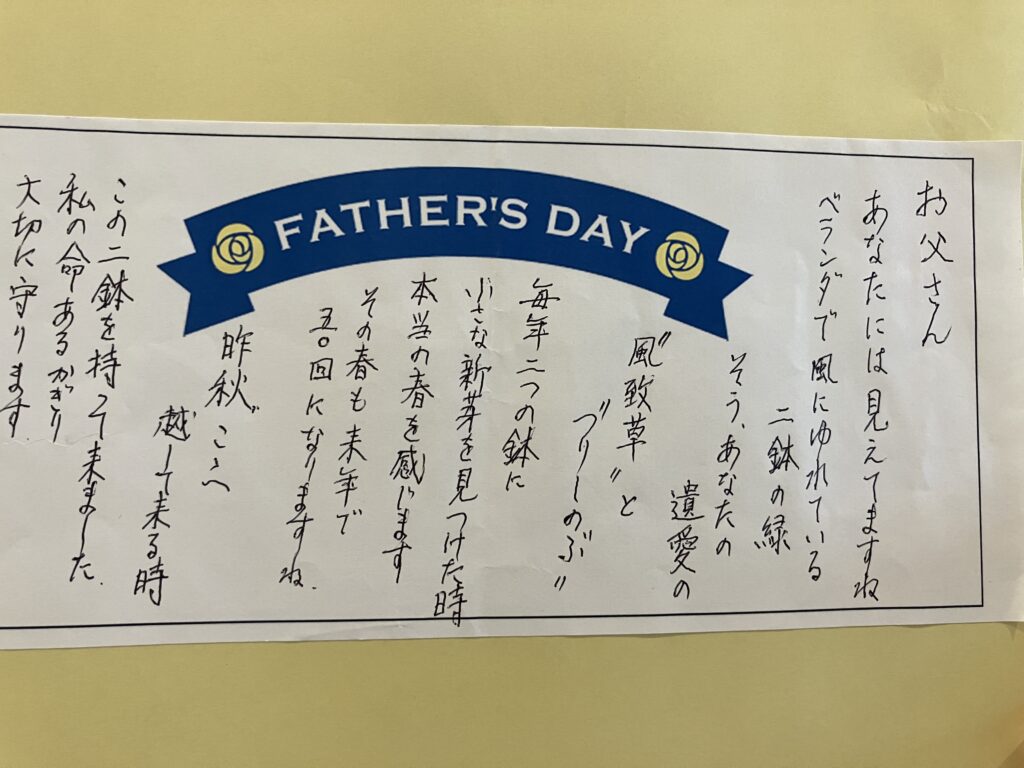 FATHER'S DAY
お父さん
あなたには見えてますね
ベランダで風にゆれている
二鉢の緑
そう、あなたの
遺愛の
"風致草"と
"つりしのぶ"
毎年二つの鉢に
小さな新芽を見つけた時
本当の春を感じます
その春も来年で
五〇回になりますね.
昨秋゛こゝへ
越して来る時
この二鉢を持って来ました.
私の命あるかぎり
大切に守ります